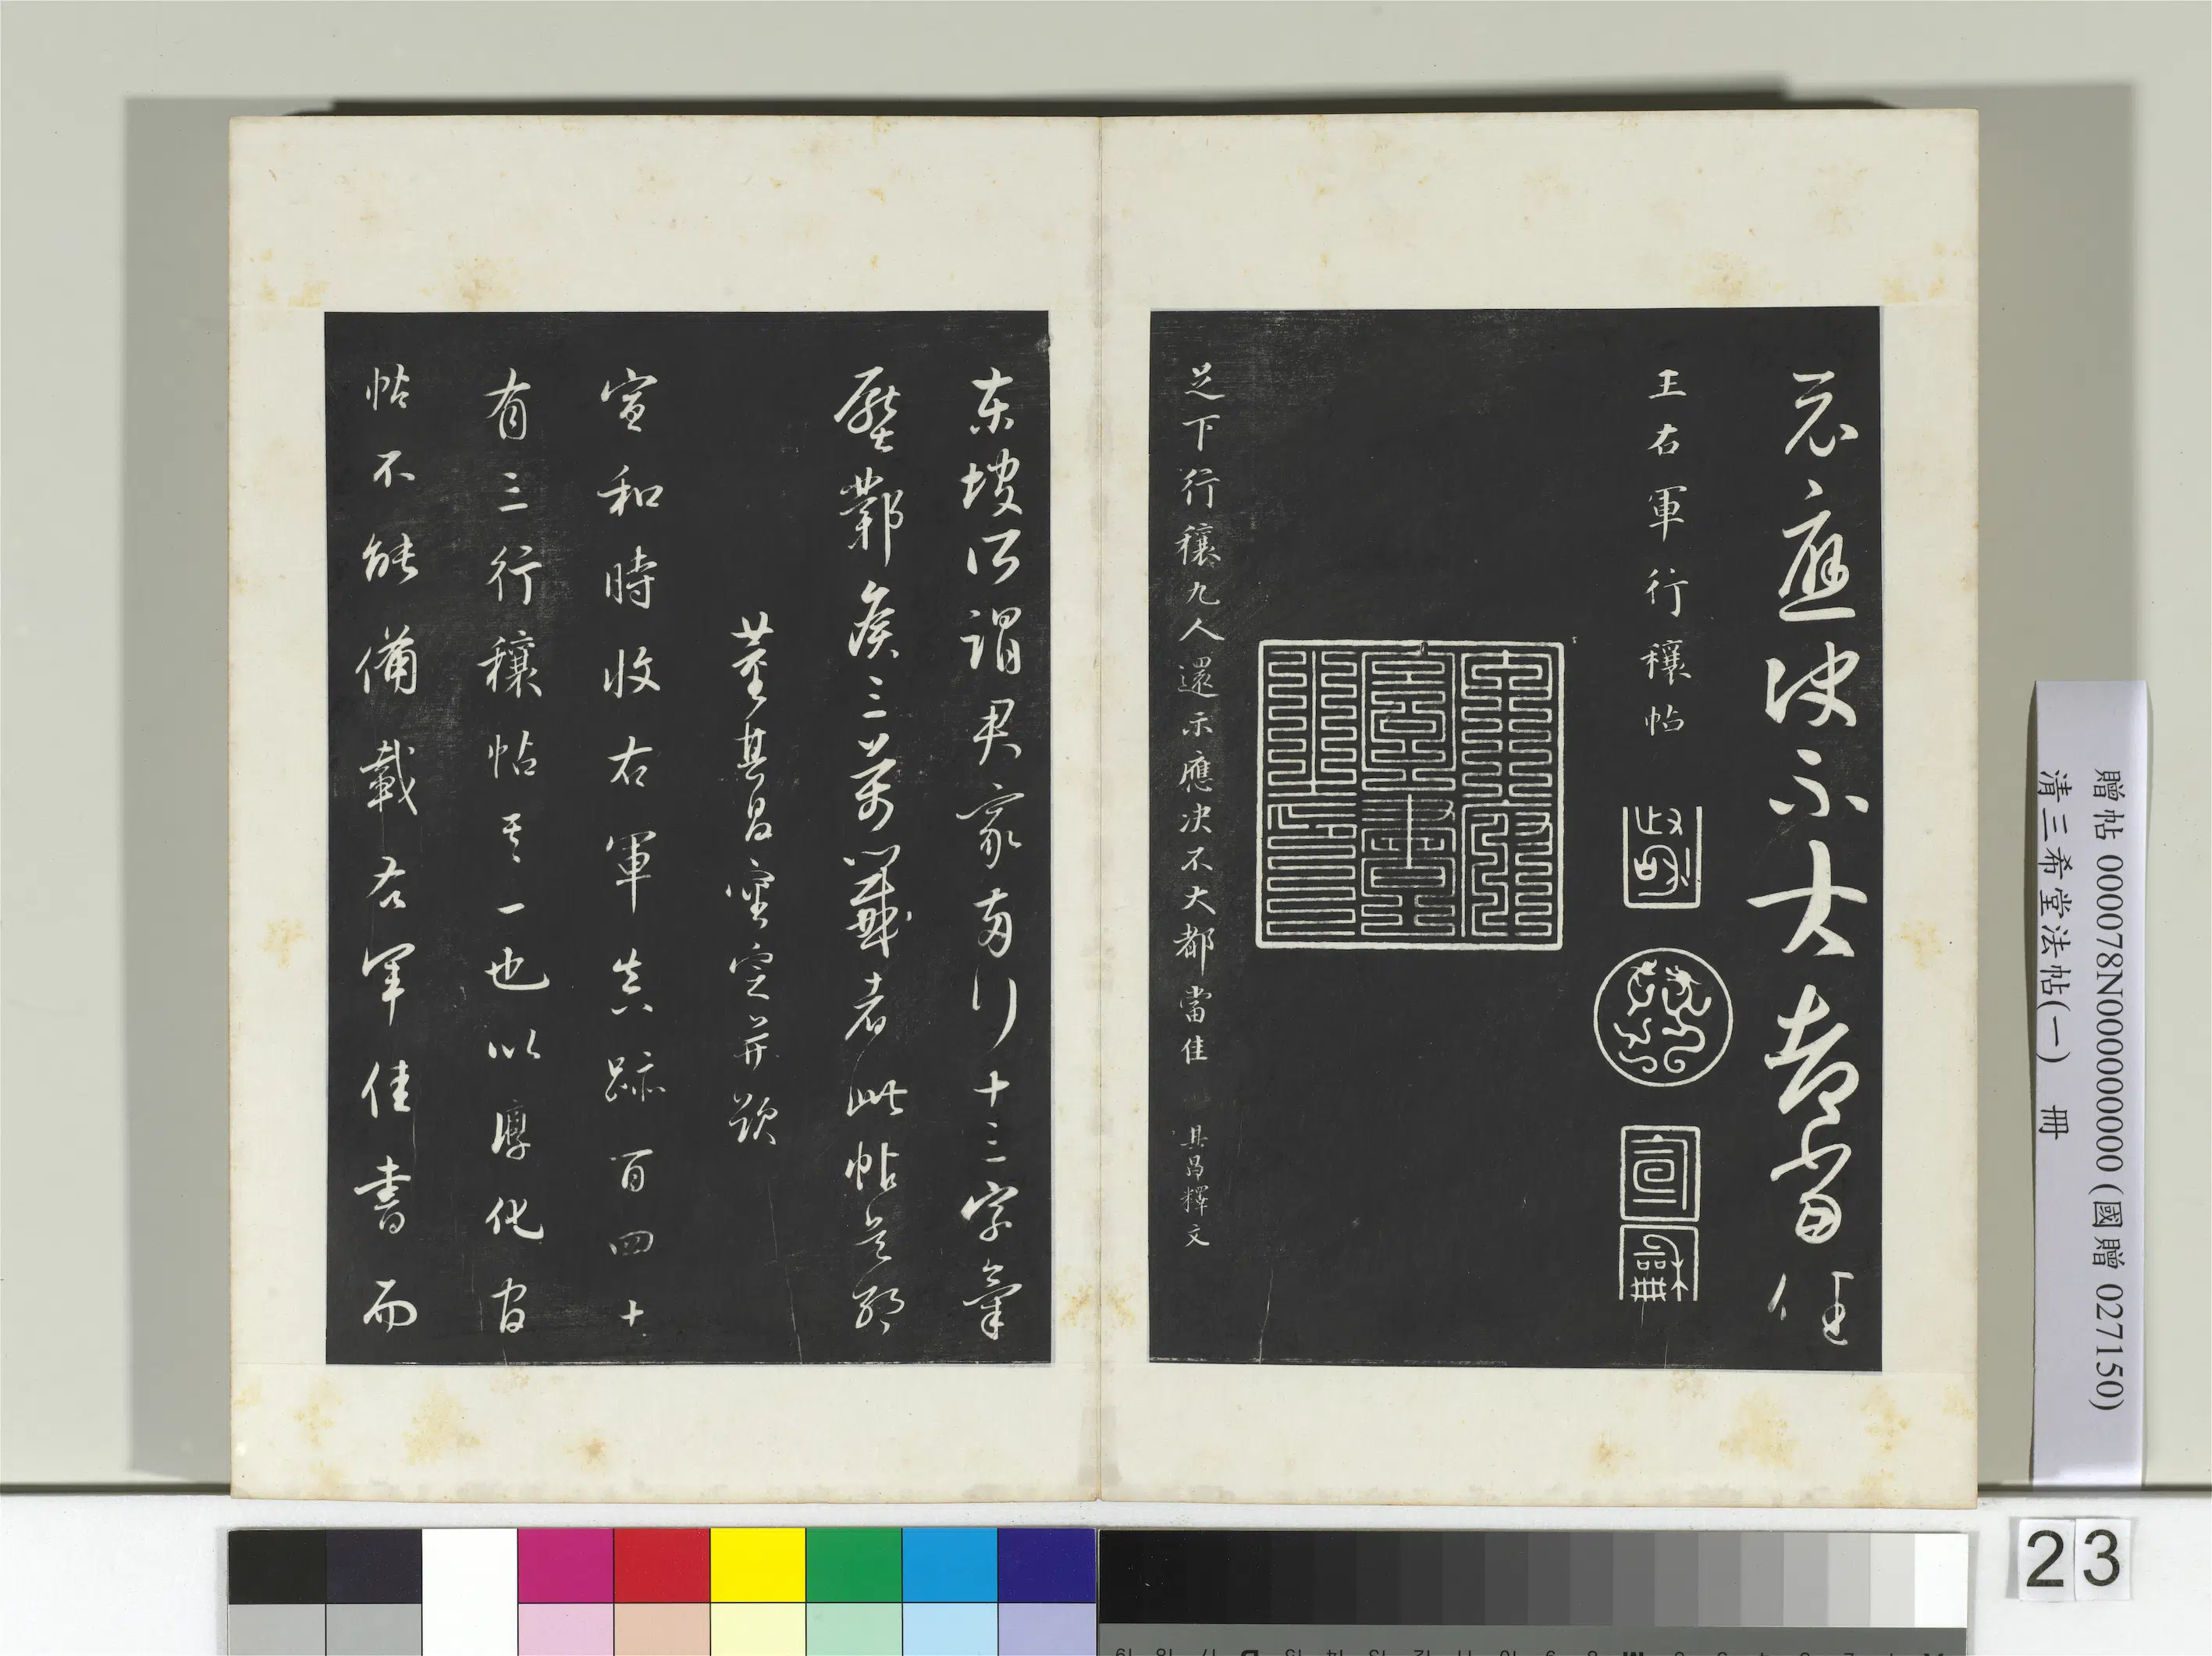 示應決不大都當佳
王右軍行穰帖
政和
宣
龢
足下行穰九人還示應决不大都當佳 其昌釋文
東坡所謂君家兩行十三字氣
壓鄴侯三萬籤者此帖是耶
董其昌審定并題
宣和時收右軍真跡百四十
有三行穰帖其一也以淳化官
帖不能備載右軍佳書而
贈帖 000078N000000000 (國贈 027150)
清三希堂法帖(一) 冊
23